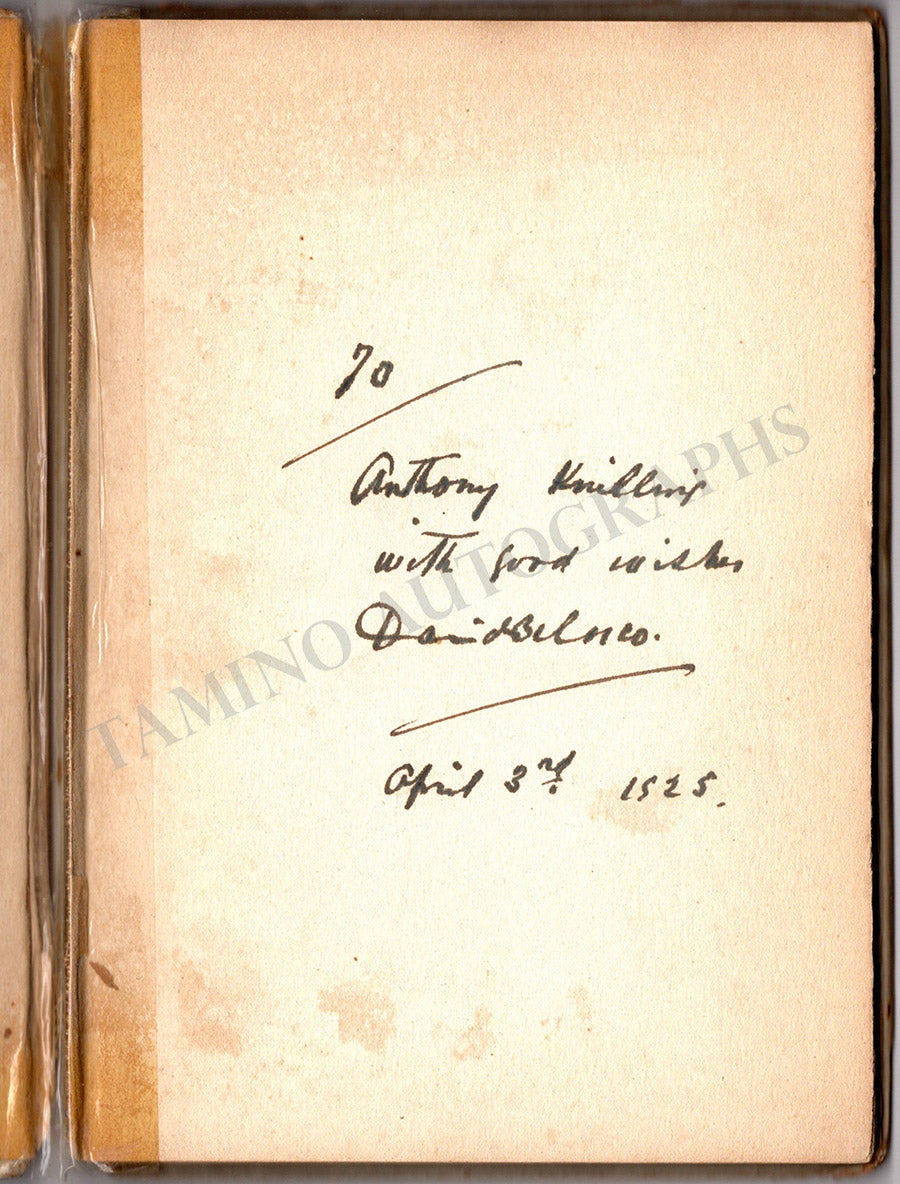 To
Anthony Knilling
with good wishes
David Belasco.
April 3rd 1925.
TAMINO AUTOGRAPHS